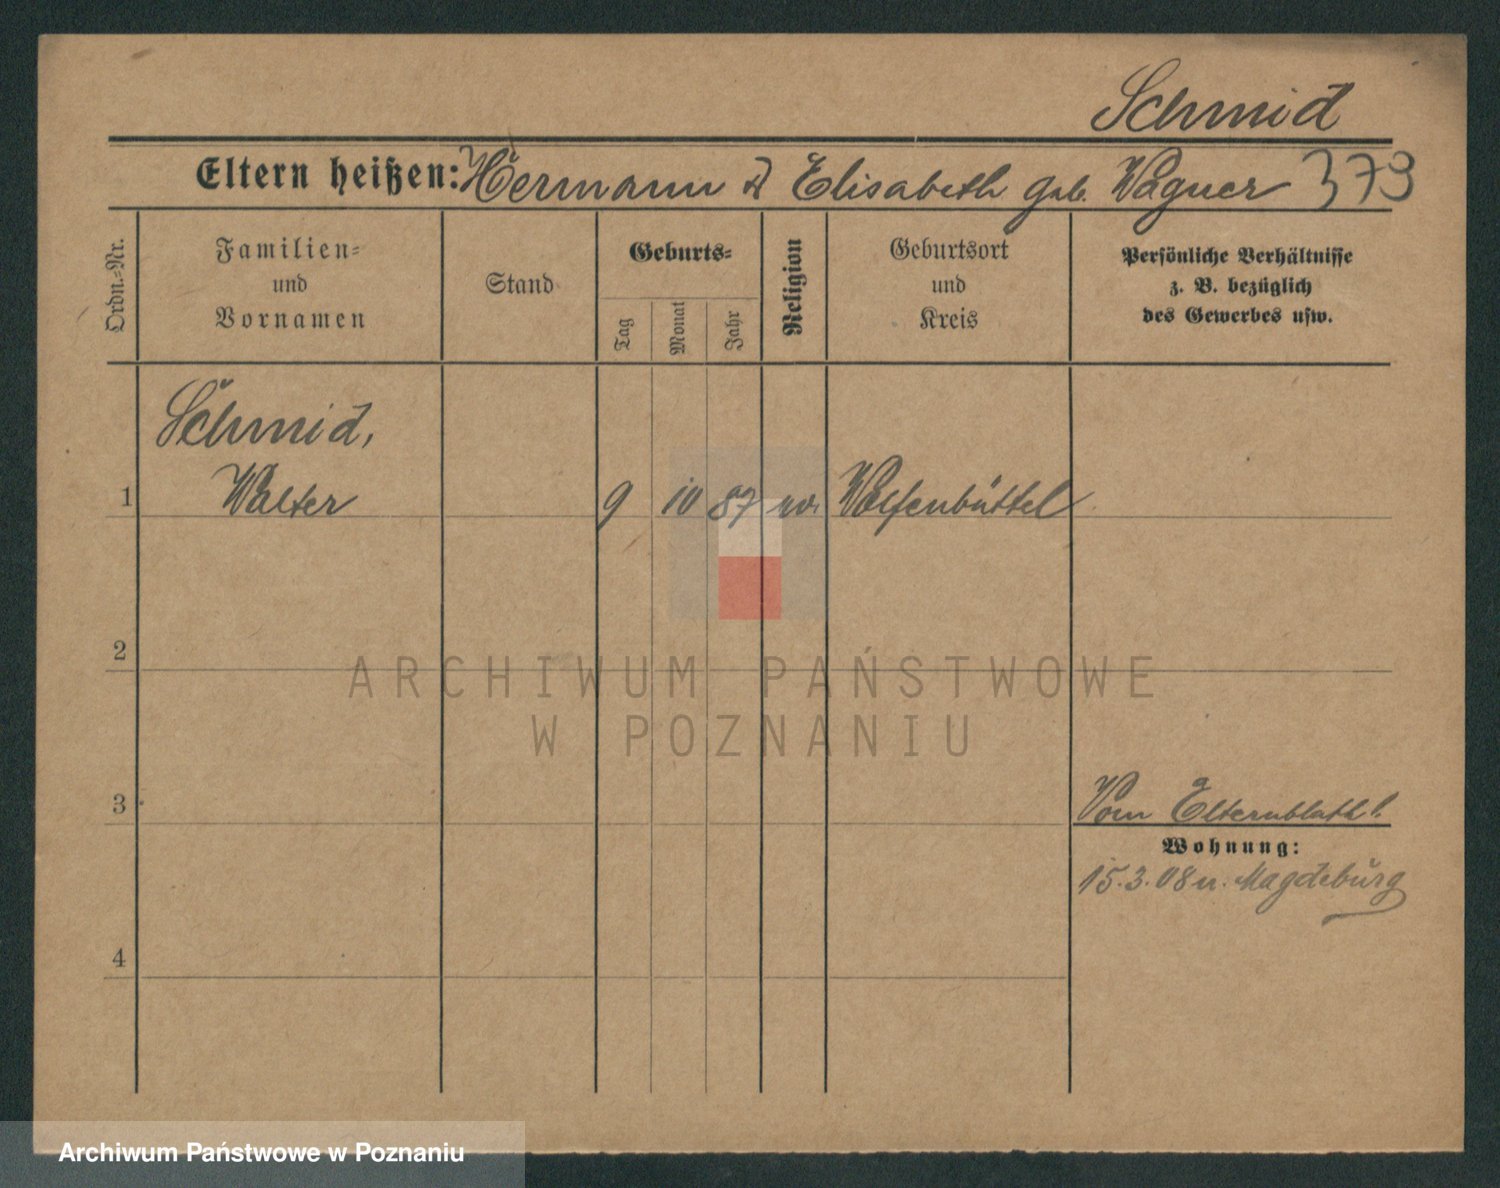 Schmid
Eltern heißen: Hermann & Elisabeth geb. Wagner 379
Ordn.-Nr.
Familien-
und
Vornamen
Stand
Geburts-
Tag
Monat
Jahr
Religion
Geburtsort
und
Kreis
Persönliche Verhältnisse
z. B. bezüglich
des Gewerbes usw.
Schmid,
1 Walter 9 10 87 Wolfenbüttel
2
ARCHIWUM PAŃSTWOWE
W POZNANIU
3
Vom Elternblatt!
Wohnung:
15.3.08 n. Magdeburg
4
Archiwum Państwowe w Poznaniu